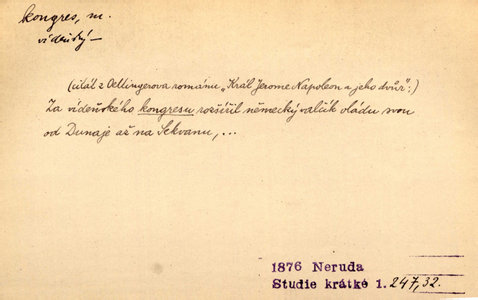 kongres, m.
vídeňský –
(citát z Oettingerova románu „Král Jerome Napoleon a jeho dvůr“:)
Za vídeňského kongresu rozšířil německý valčík vládu svou
od Dunaje až na Sekvanu, ...
1876 Neruda
Studie krátké 1. 247, 32.